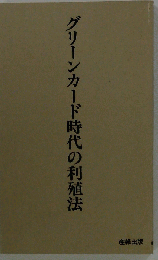 グリーンカード時代の利殖法